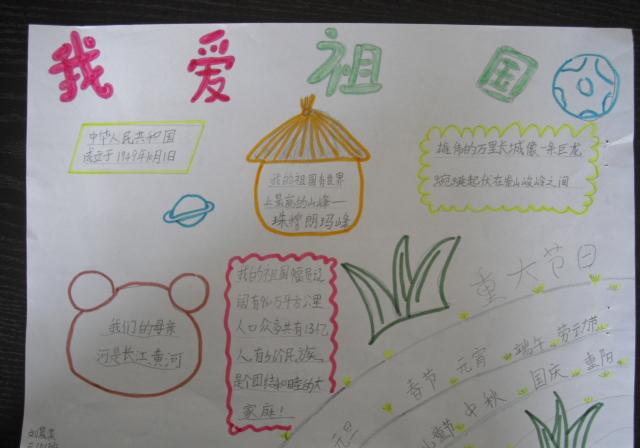 我爱祖国
中华人民共和国
成立于1949年10月1日
我的祖国有世界
上最高的山峰——
珠穆朗玛峰
雄伟的万里长城像一条巨龙
蜿蜒起伏在崇山峻岭之间
我们的母亲
河是长江、黄河
我的祖国幅员辽
阔有960万平方公里
人口众多共有13亿
人,有56个民族,
是个团结和睦的大
家庭!
重大节日
元旦 春节 元宵 端午 劳动节
儿童节 中秋 国庆 重阳